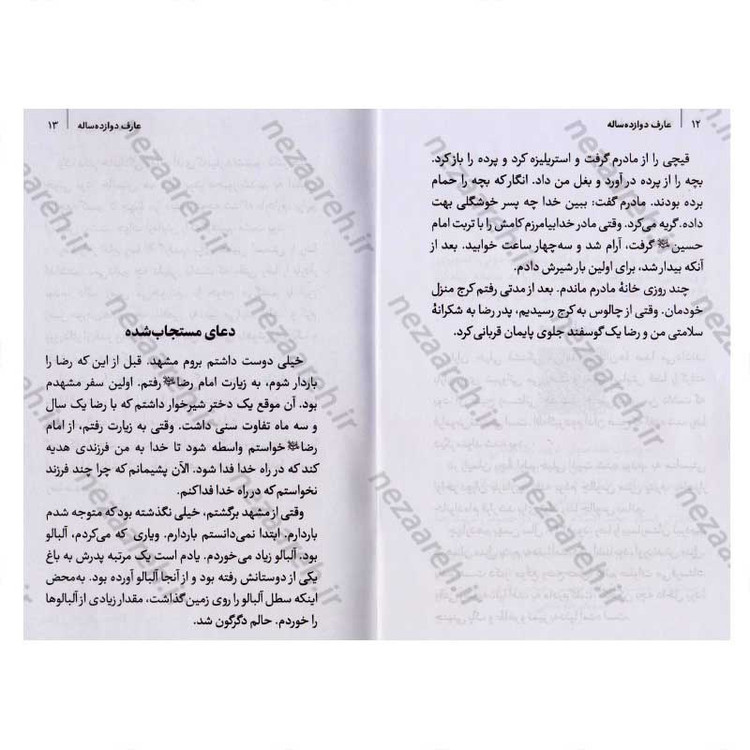 ۱۲ | عارف دوازده‌ساله
قیچی را از مادرم گرفت و استریلیزه کرد و پرده را باز کرد.
بچه را از پرده در آورد و بغل من داد. انگار که بچه را حمام
برده بودند. مادرم گفت: ببین خدا چه پسر خوشگلی بهت
داده. گریه می‌کرد. وقتی مادر خدابیامرزم کامش را با تربت امام
حسین گرفت، آرام شد و سه‌چهار ساعت خوابید. بعد از
آنکه بیدار شد، برای اولین بار شیرش دادم.
چند روزی خانهٔ مادرم ماندم. بعد از مدتی رفتم کرج منزل
خودمان. وقتی از چالوس به کرج رسیدیم، پدر رضا به شکرانهٔ
سلامتی من و رضا یک گوسفند جلوی پایمان قربانی کرد.
عارف دوازده‌ساله | ۱۳
دعای مستجاب‌شده
خیلی دوست داشتم بروم مشهد. قبل از این که رضا را
باردار شوم، به زیارت امام رضا رفتم. اولین سفر مشهدم
بود. آن موقع یک دختر شیرخوار داشتم که با رضا یک سال
و سه ماه تفاوت سنی داشت. وقتی به زیارت رفتم، از امام
رضا خواستم واسطه شود تا خدا به من فرزندی هدیه
کند که در راه خدا فدا شود. الآن پشیمانم که چرا چند فرزند
نخواستم که در راه خدا فدا کنم.
وقتی از مشهد برگشتم، خیلی نگذشته بود که متوجه شدم
باردارم. ابتدا نمی‌دانستم باردارم. ویاری که می‌کردم، آلبالو
بود. آلبالو زیاد می‌خوردم. یادم است یک مرتبه پدرش به باغ
یکی از دوستانش رفته بود و از آنجا آلبالو آورده بود. به‌محض
اینکه سطل آلبالو را روی زمین گذاشت، مقدار زیادی از آلبالوها
را خوردم. حالم دگرگون شد.
nezaareh.ir
nezaareh.ir
nezaareh.ir
nezaareh.ir
nezaareh.ir
nezaareh.ir
nezaareh.ir
nezaareh.ir
nezaareh.ir